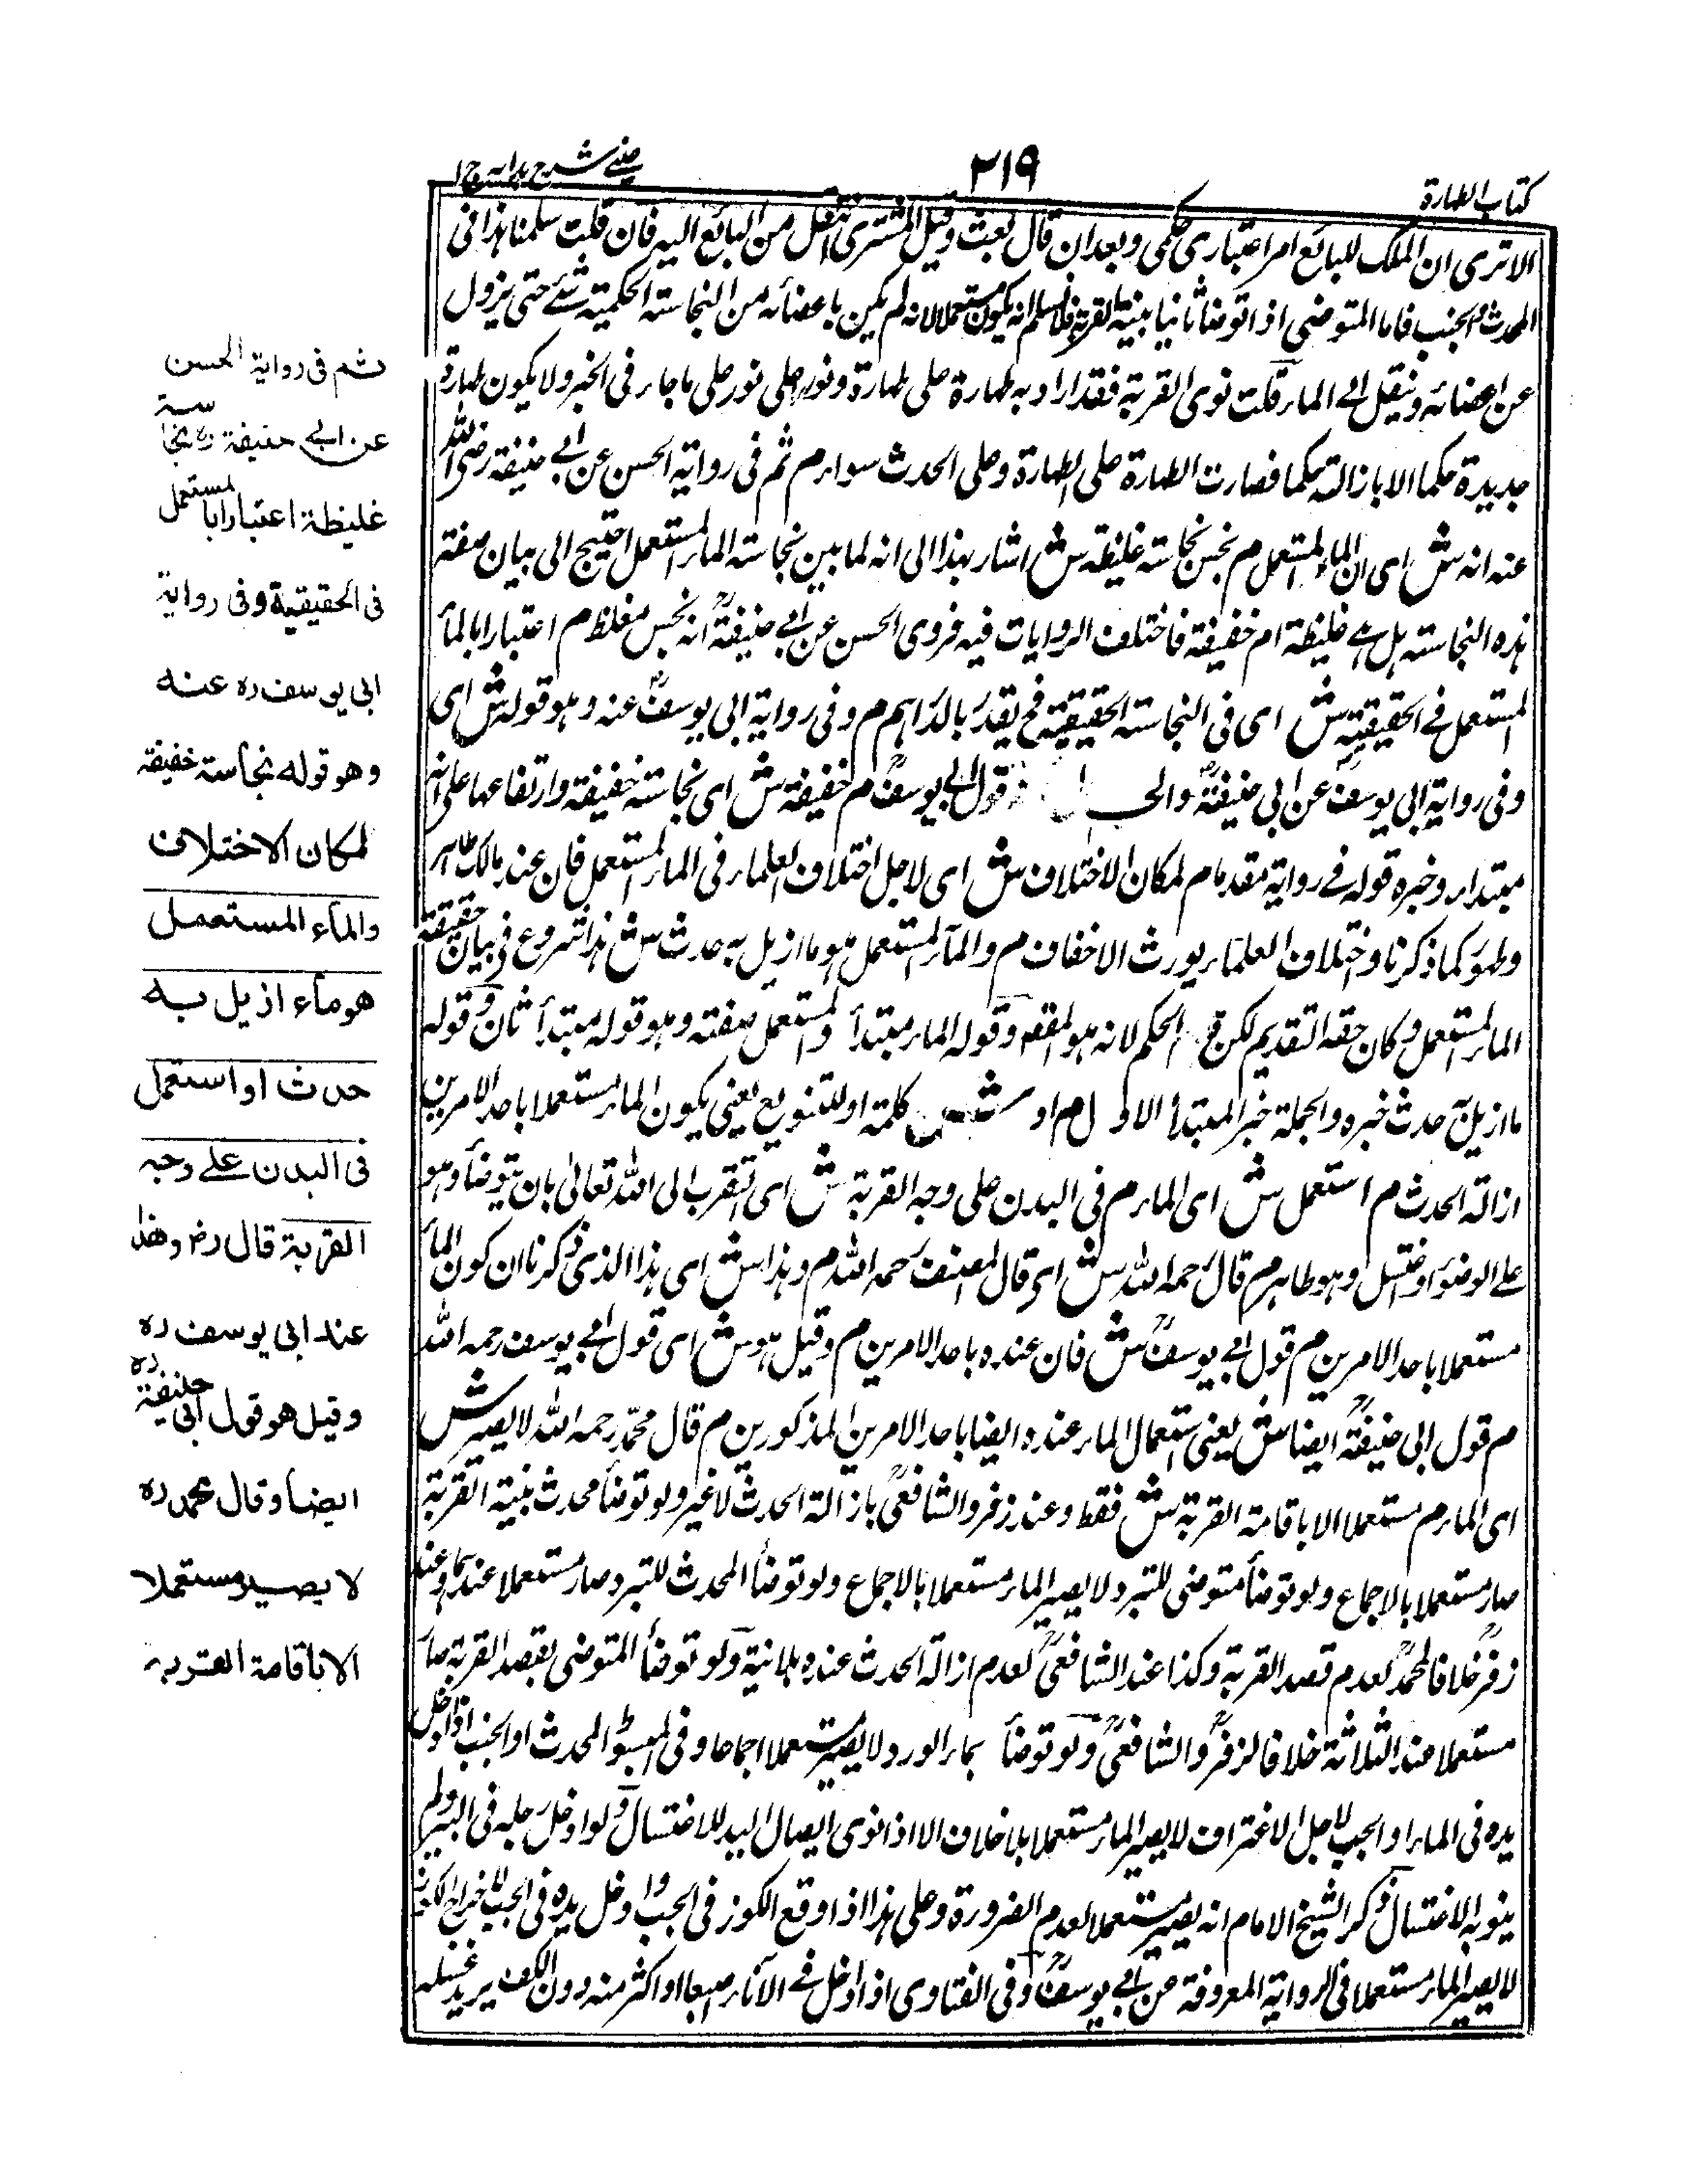 كتاب الطهارة
٢١٩
عينى شرح هدايه ج١
الا ترى ان الملك للبائع امر اعتبارى حكمى وبعد ان قال بعت وقبل المشترى انتقل من البائع اليه فان قلت سلمنا هذا فى
المحدث والجنب فاما المتوضى اذا توضأ ثانيا بنية القربة فلا نسلم انه يكون مستعملا لانه لم يكن باعضائه من النجاسة الحكمية شئ حتى يزول
عن اعضائه وينقل الى الماء قلت نوى القربة فقد اراد به طهارة على طهارة ونور على نور على ما جاء فى الخبر ولا يكون طهارة
جديدة حكما الا بازالة حكما فصارت الطهارة على الطهارة وعلى الحدث سواء م ثم فى رواية الحسن عن ابى حنيفة رضى الله
عنه انه ش اى ان الماء المستعمل م نجس نجاسة غليظة ش اشار بهذا الى انه لما بين نجاسة الماء المستعمل احتيج الى بيان صفة
هذه النجاسة هل هى غليظة ام خفيفة فاختلف الروايات فيه فروى الحسن عن ابى حنيفةؒ انه نجس مغلظ م اعتبارا بالماء
المستعمل فى الحقيقية ش اى فى النجاسة الحقيقية فح يقدر بالدراهم م وفى رواية ابى يوسفؒ عنه وهو قوله ش اى
وفى رواية ابى يوسفؒ عن ابى حنيفةؒ والحـ قول ابى يوسفؒ م خفيفة ش اى نجاسة خفيفة وارتفاعها على انه
مبتداء وخبره قوله فى رواية مقدما م لمكان الاختلاف ش اى لاجل اختلاف العلماء فى الماء المستعمل فان عند مالك طاهر
وطهور كما ذكرنا واختلاف العلماء يورث الاخفاف م والماء المستعمل هو ما ازيل به حدث ش هذا شروع فى بيان حقيقة
الماء المستعمل وكان حقه التقديم لكن الحكم لانه هو المقصود وقوله الماء مبتدأ والمستعمل صفته وهو قوله مبتدأ ثان وقوله
ما ازيل به حدث خبره والجملة خبر المبتدأ الاول م او ش كلمة او للتنويع يعنى يكون الماء مستعملا باحد الامرين
ازالة الحدث م استعمل ش اى الماء م فى البدن على وجه القربة ش اى تقرب الى الله تعالى بان يتوضأ وهو
على الوضوء او اغتسل وهو طاهر م قال رحمه الله ش اى قال المصنف رحمه الله م وهذا ش اى هذا الذى ذكرنا ان كون الماء
مستعملا باحد الامرين م قول ابى يوسفؒ ش فان عنده باحد الامرين م وقيل هو ش اى قول ابى يوسف رحمه الله
م قول ابى حنيفةؒ ايضا ش يعنى استعمال الماء عنده ايضا باحد الامرين المذكورين م قال محمد رحمه الله لا يصير ش
اى الماء م مستعملا الا باقامة القربة ش فقط وعند زفر والشافعىؒ بازالة الحدث لا غير ولو توضأ محدث بنية القربة
صار مستعملا بالاجماع ولو توضأ متوضى للتبرد لا يصير الماء مستعملا بالاجماع ولو توضأ المحدث للتبرد صار مستعملا عندهما وعند
زفرؒ خلافا لمحمدؒ لعدم قصد القربة وكذا عند الشافعىؒ لعدم ازالة الحدث عنده بلا نية ولو توضأ المتوضى بقصد القربة صار
مستعملا عند الثلاثة خلافا لزفرؒ والشافعىؒ ولو توضأ بماء الورد لا يصير مستعملا اجماعا وفى المبسوط المحدث او الجنب اذا ادخل
يده فى الماء او الجب لاجل الاغتراف لا يصير الماء مستعملا بلا خلاف الا اذا نوى ايصال اليد للاغتسال ولو ادخل رجله فى البير ولم
ينو به الاغتسال ذكر الشيخ الامام انه يصير مستعملا لعدم الضرورة وعلى هذا اذا وقع الكوز فى الجب وادخل يده فى الجب لاخراج الكوز
لا يصير الماء مستعملا فى الرواية المعروفة عن ابى يوسفؒ وفى الفتاوى اذا ادخل فى الاناء اصبعا او اكثر منه دون الكف يريد غسله
ثم فى رواية الحسن
عن ابى حنيفة ره نجاسة
غليظة اعتبارا بالمستعمل
فى الحقيقية وفى رواية
ابى يوسف ره عنه
وهو قوله نجاسة خفيفة
لمكان الاختلاف
والماء المستعمل
هو ماء ازيل به
حدث او استعمل
فى البدن على وجه
القربة قال رض وهذا
عند ابى يوسف ره
وقيل هو قول ابى حنيفة ره
ايضا وقال محمد ره
لا يصير مستعملا
الا باقامة القربة